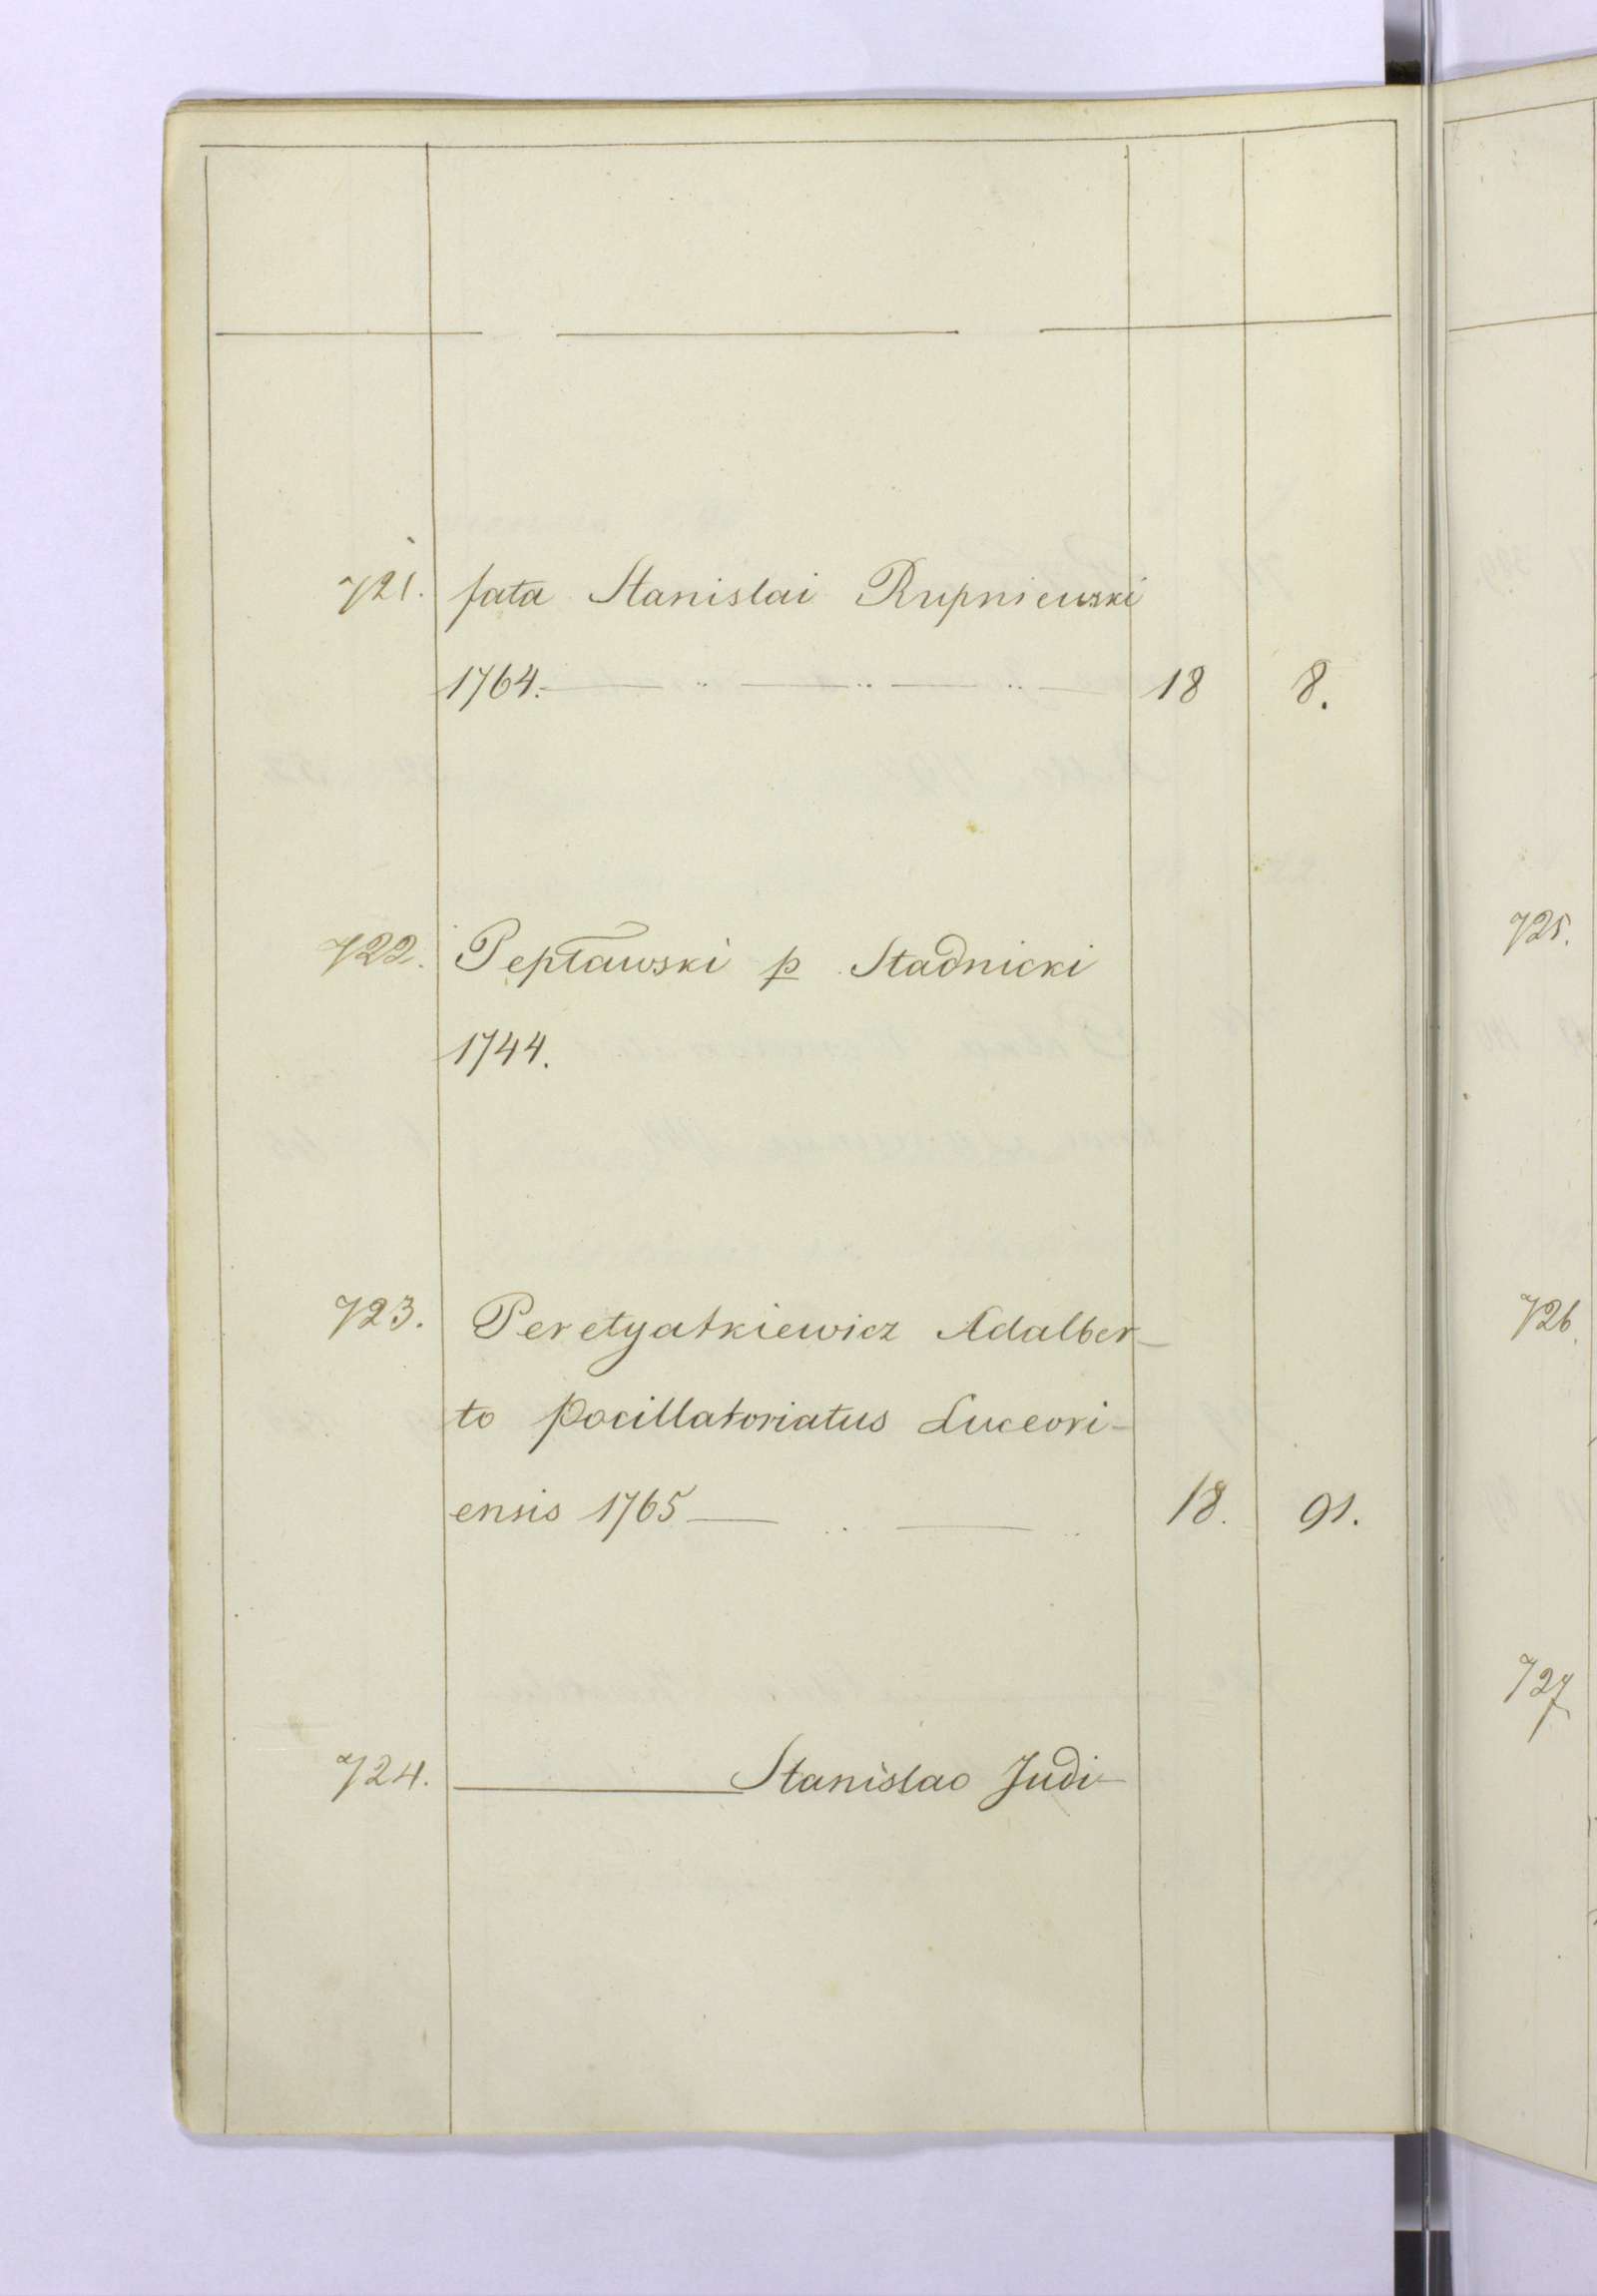 721. fata Stanislai Rupniewski
1764. — .. — .. — .. — 18 8.
722. Pepławski p Stadnicki
1744.
723. Peretyatkiewicz Adalber-
to pocillatoriatus Luceori-
ensis 1765 — .. — .. 18. 91.
724. — Stanislao Judi-
725.
726.
727